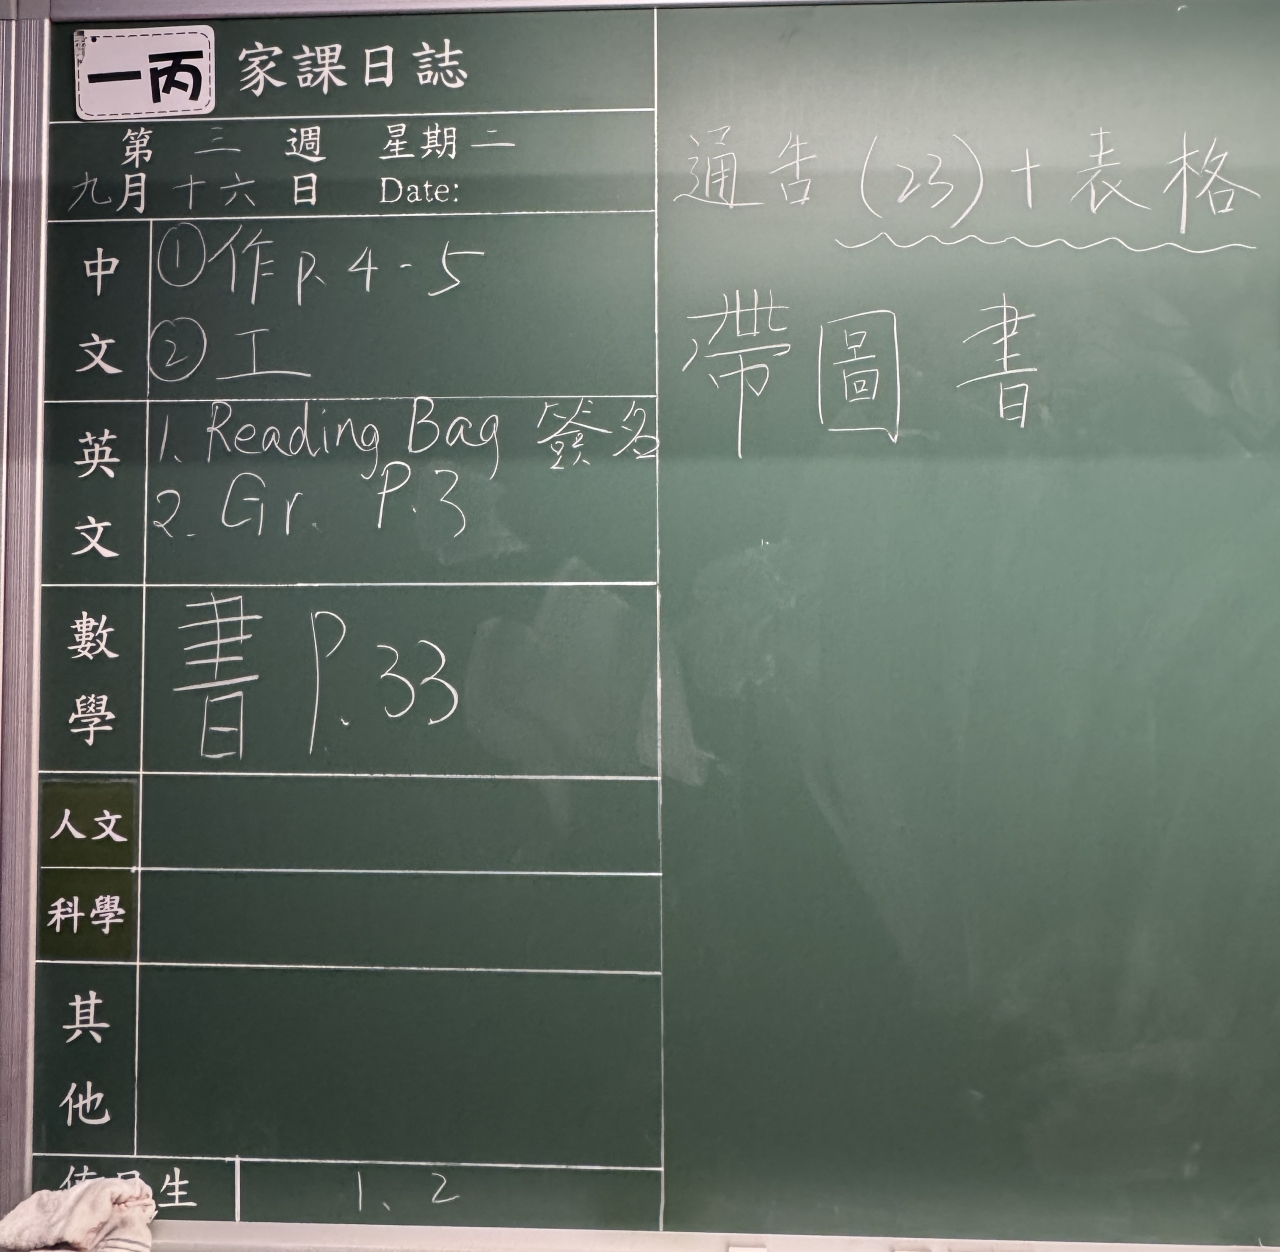 一丙 家課日誌
第 三 週 星期二
九月十六日 Date:
中文
①作p. 4-5
②工
英文
1. Reading Bag 簽名
2. Gr. P.3
數學
書 P.33
人文
科學
其他
生 1、2
通告(23)+表格
帶圖書